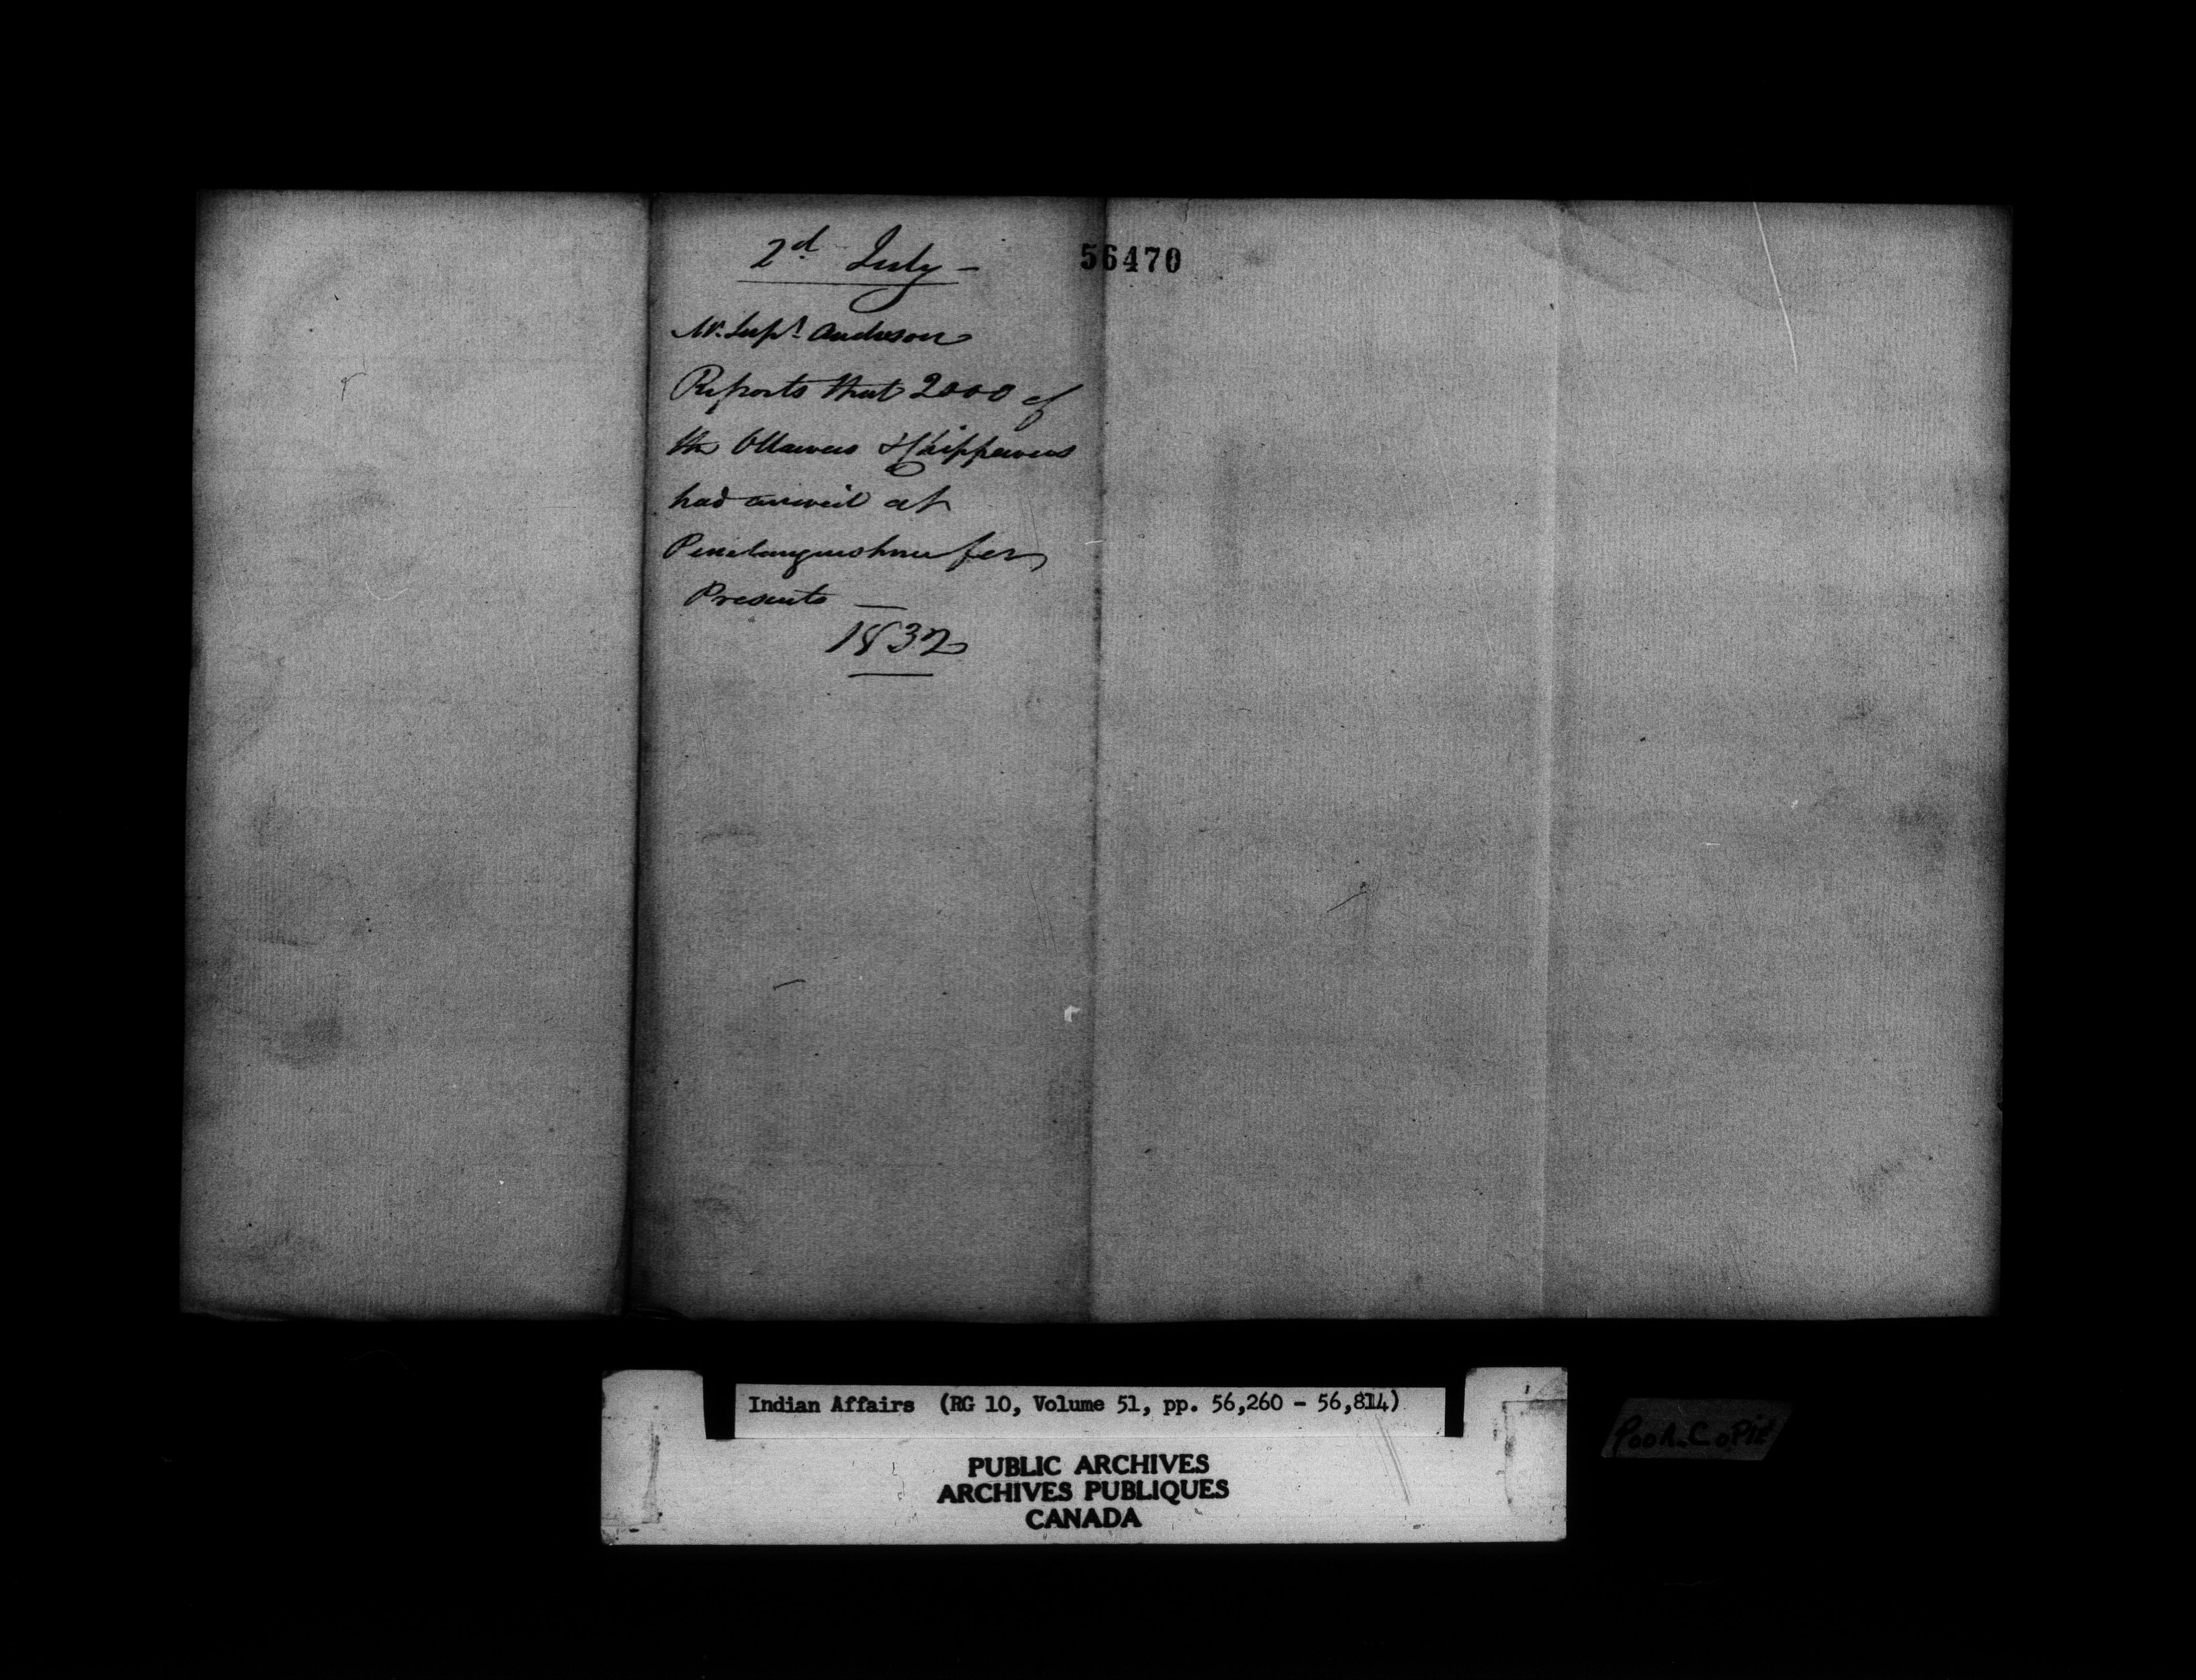 2d July -
56470
Mr. Supt. Anderson
Reports that 2000 of
the Ottawas & Chippawas
had arrived at
Penetanguishine for
Presents —
1832
Indian Affairs (RG 10, Volume 51, pp. 56,260 - 56,814)
PUBLIC ARCHIVES
ARCHIVES PUBLIQUES
CANADA
Poor. Copie